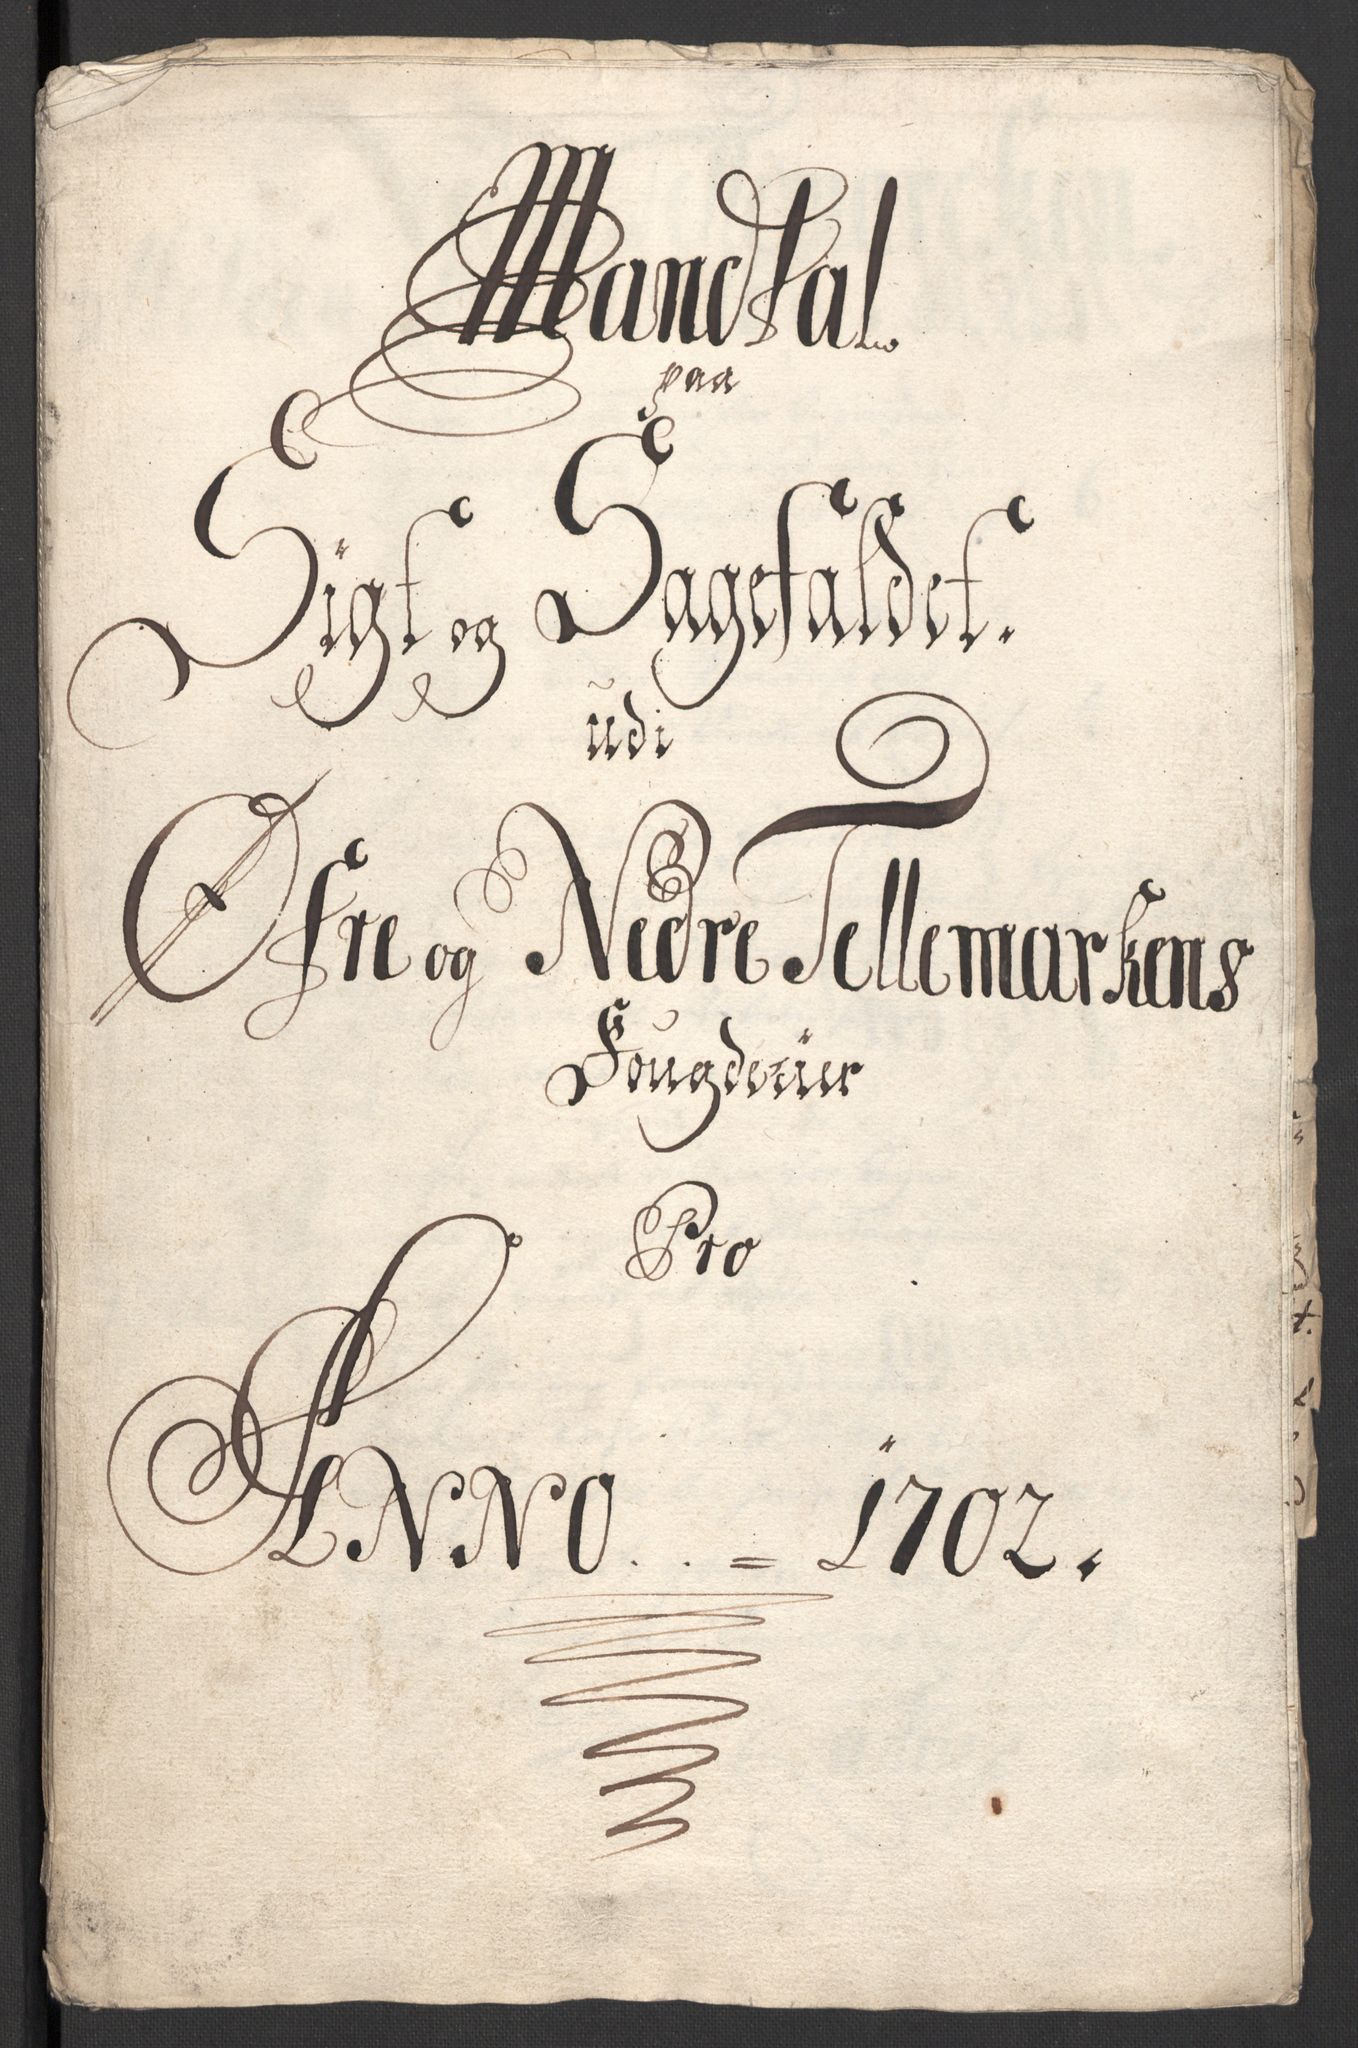 Mandtal
paa
Sigt og Sagefaldet.
udi
Øfre og Nedre Tellemarkens
Fougderier
Pro
ANNO . . = 1702.